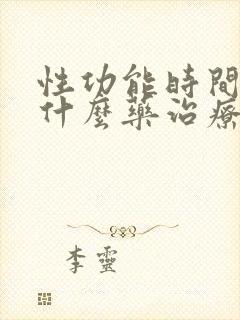 性功能時間
什麼藥治療
李靈